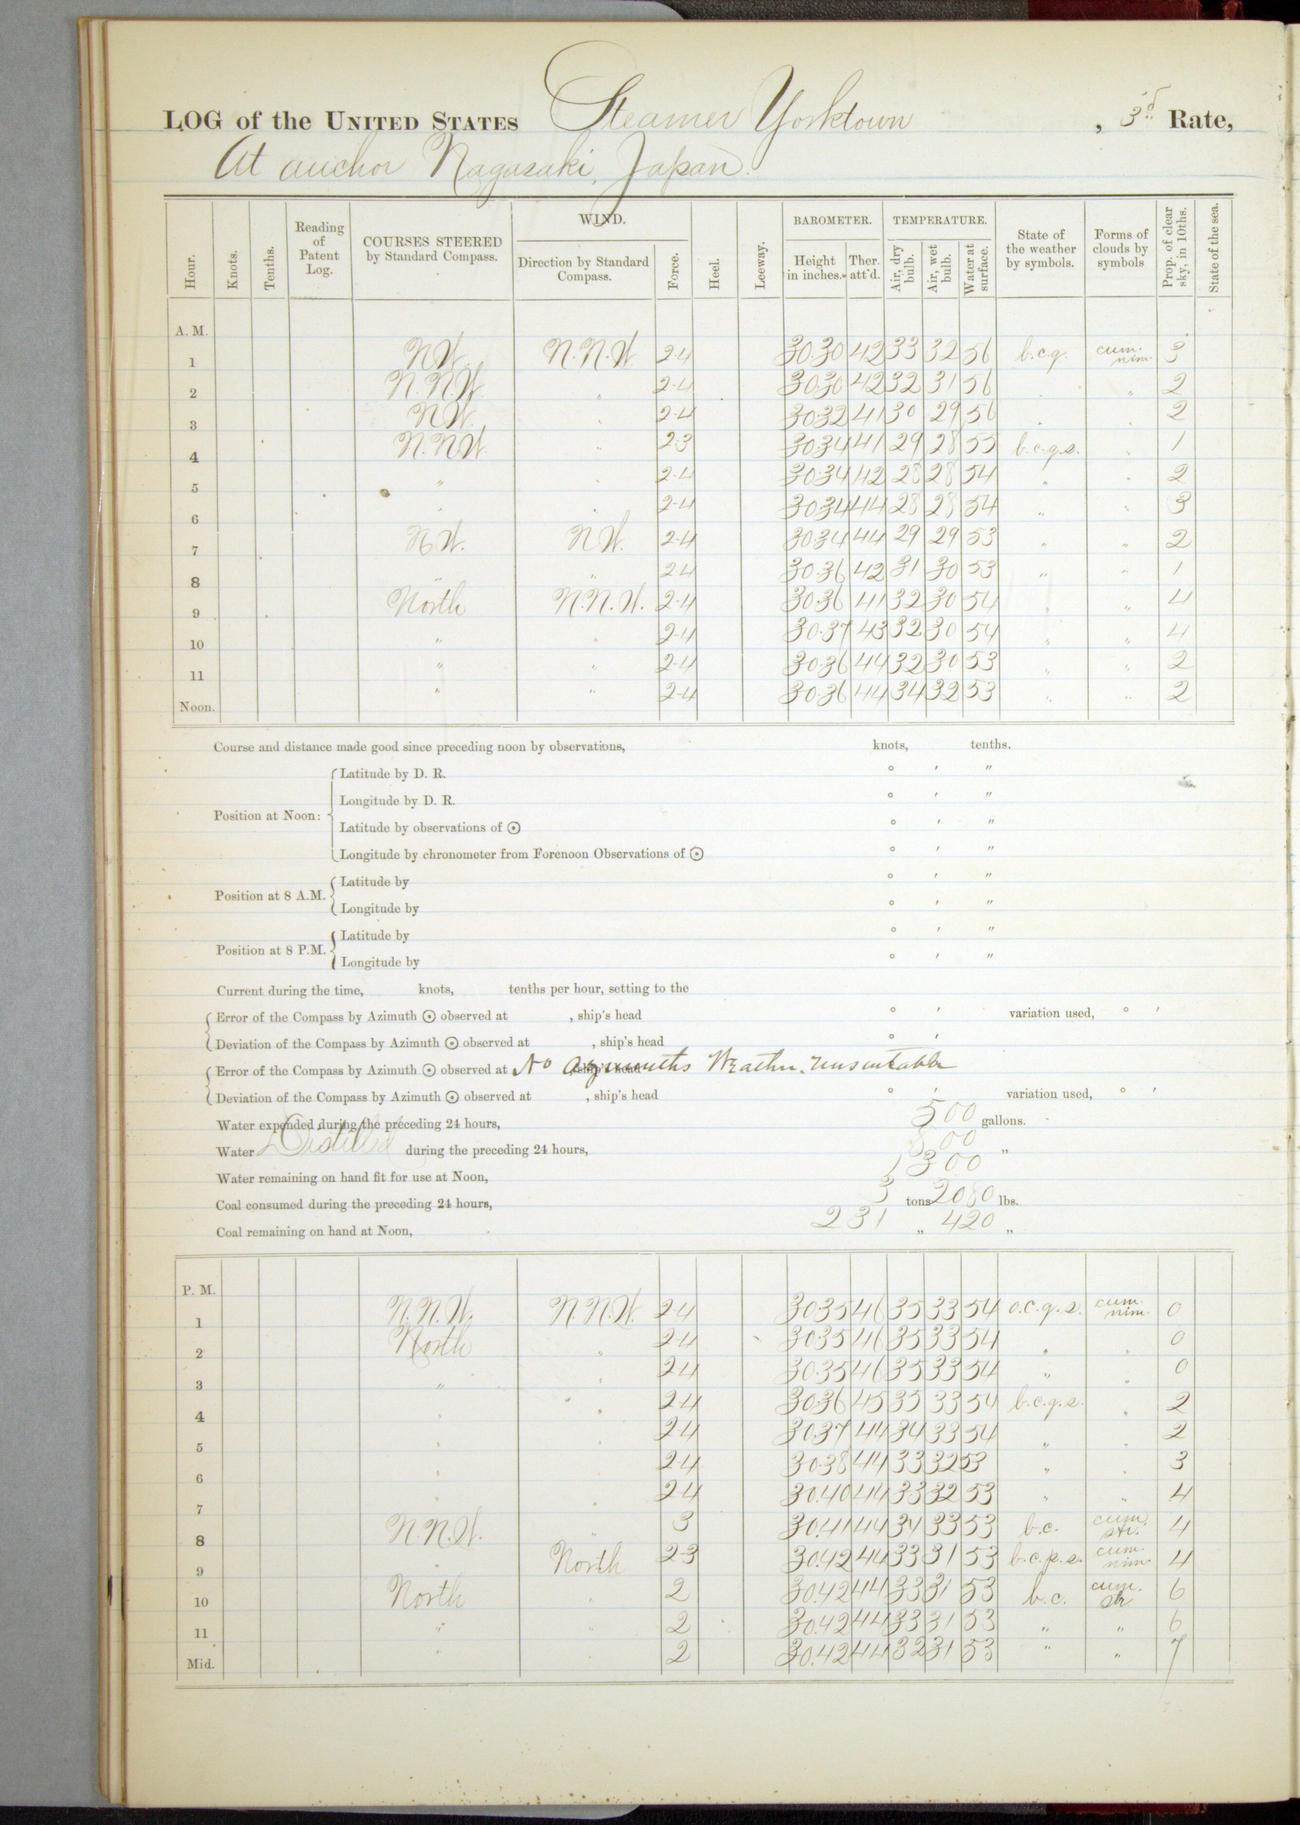 LOG of the UNITED STATES Steamer Yorktown , 3d Rate,
At anchor Nagasaki, Japan.
Hour. Knots. Tenths. Reading of Patent Log. COURSES STEERED by Standard Compass. WIND. Direction by Standard Compass. Force. Heel. Leeway. BAROMETER. Height in inches. Ther. att'd. TEMPERATURE. Air, dry bulb. Air, wet bulb. Water at surface. State of the weather by symbols. Forms of clouds by symbols Prop. of clear sky, in 10ths. State of the sea.
A. M.
1 NW. N.N.W. 2-4 30.30 42 33 32 56 b.c.q. cum. nim. 3
2 N.N.W. " 2-4 30.30 42 32 31 56 " " 2
3 NW. " 2-4 30.32 41 30 29 56 " " 2
4 N.NW. " 2-3 30.34 41 29 28 55 b.c.q.s. " 1
5 " " 2-4 30.34 42 28 28 54 " " 2
6 " " 2-4 30.34 44 28 28 54 " " 3
7 NW. NW. 2-4 30.34 44 29 29 53 " " 2
8 " " 2-4 30.36 42 31 30 53 " " 1
9 North N.N.W. 2-4 30.36 41 32 30 54 " " 4
10 " " 2-4 30.37 43 32 30 54 " " 4
11 " " 2-4 30.36 44 32 30 53 " " 2
Noon. " " 2-4 30.36 44 34 32 53 " " 2
Course and distance made good since preceding noon by observations, knots, tenths.
Position at Noon: Latitude by D. R. ° ′ ″
Longitude by D. R. ° ′ ″
Latitude by observations of ☉ ° ′ ″
Longitude by chronometer from Forenoon Observations of ☉ ° ′ ″
Position at 8 A.M. Latitude by ° ′ ″
Longitude by ° ′ ″
Position at 8 P.M. Latitude by ° ′ ″
Longitude by ° ′ ″
Current during the time, knots, tenths per hour, setting to the
Error of the Compass by Azimuth ☉ observed at , ship's head ° ′ variation used, ° ′
Deviation of the Compass by Azimuth ☉ observed at , ship's head ° ′
Error of the Compass by Azimuth ☉ observed at , ship's head No azimuths Weather unsuitable
Deviation of the Compass by Azimuth ☉ observed at , ship's head ° ′ variation used, ° ′
Water expended during the preceding 24 hours, 500 gallons.
Water Distilled during the preceding 24 hours, 800 "
Water remaining on hand fit for use at Noon, 1300
Coal consumed during the preceding 24 hours, 3 tons 2080 lbs.
Coal remaining on hand at Noon, 231 " 420 "
P. M.
1 N.N.W. N.N.W. 2-4 30.35 46 35 33 54 o.c.q.s. cum. nim. 0
2 North " 2-4 30.35 46 35 33 54 " " 0
3 " " 2-4 30.35 46 35 33 54 " " 0
4 " " 2-4 30.36 45 35 33 54 b.c.q.s. " 2
5 " " 2-4 30.37 44 34 33 54 " " 2
6 " " 2-4 30.38 44 33 32 53 " " 3
7 " " 2-4 30.40 44 33 32 53 " " 4
8 N.N.W. " 3 30.41 44 34 33 53 b.c. cum. str. 4
9 " North 2-3 30.42 44 33 31 53 b.c.p.s. cum. nim. 4
10 North " 2 30.42 44 33 31 53 b.c. cum. str 6
11 " " 2 30.42 44 33 31 53 " " 6
Mid. " " 2 30.42 44 32 31 53 " " 7